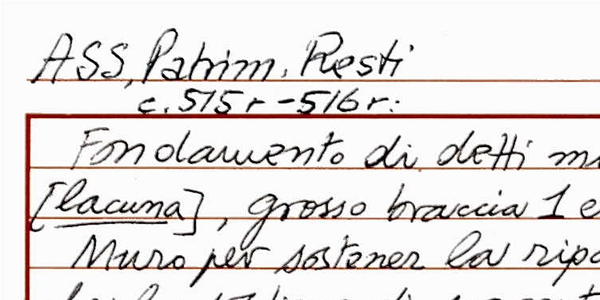 ASS, Patrim. Resti
c. 515r - 516r:
Fondamento di detti
[lacuna], grosso braccia 1 e
Muro per sostener la ripa